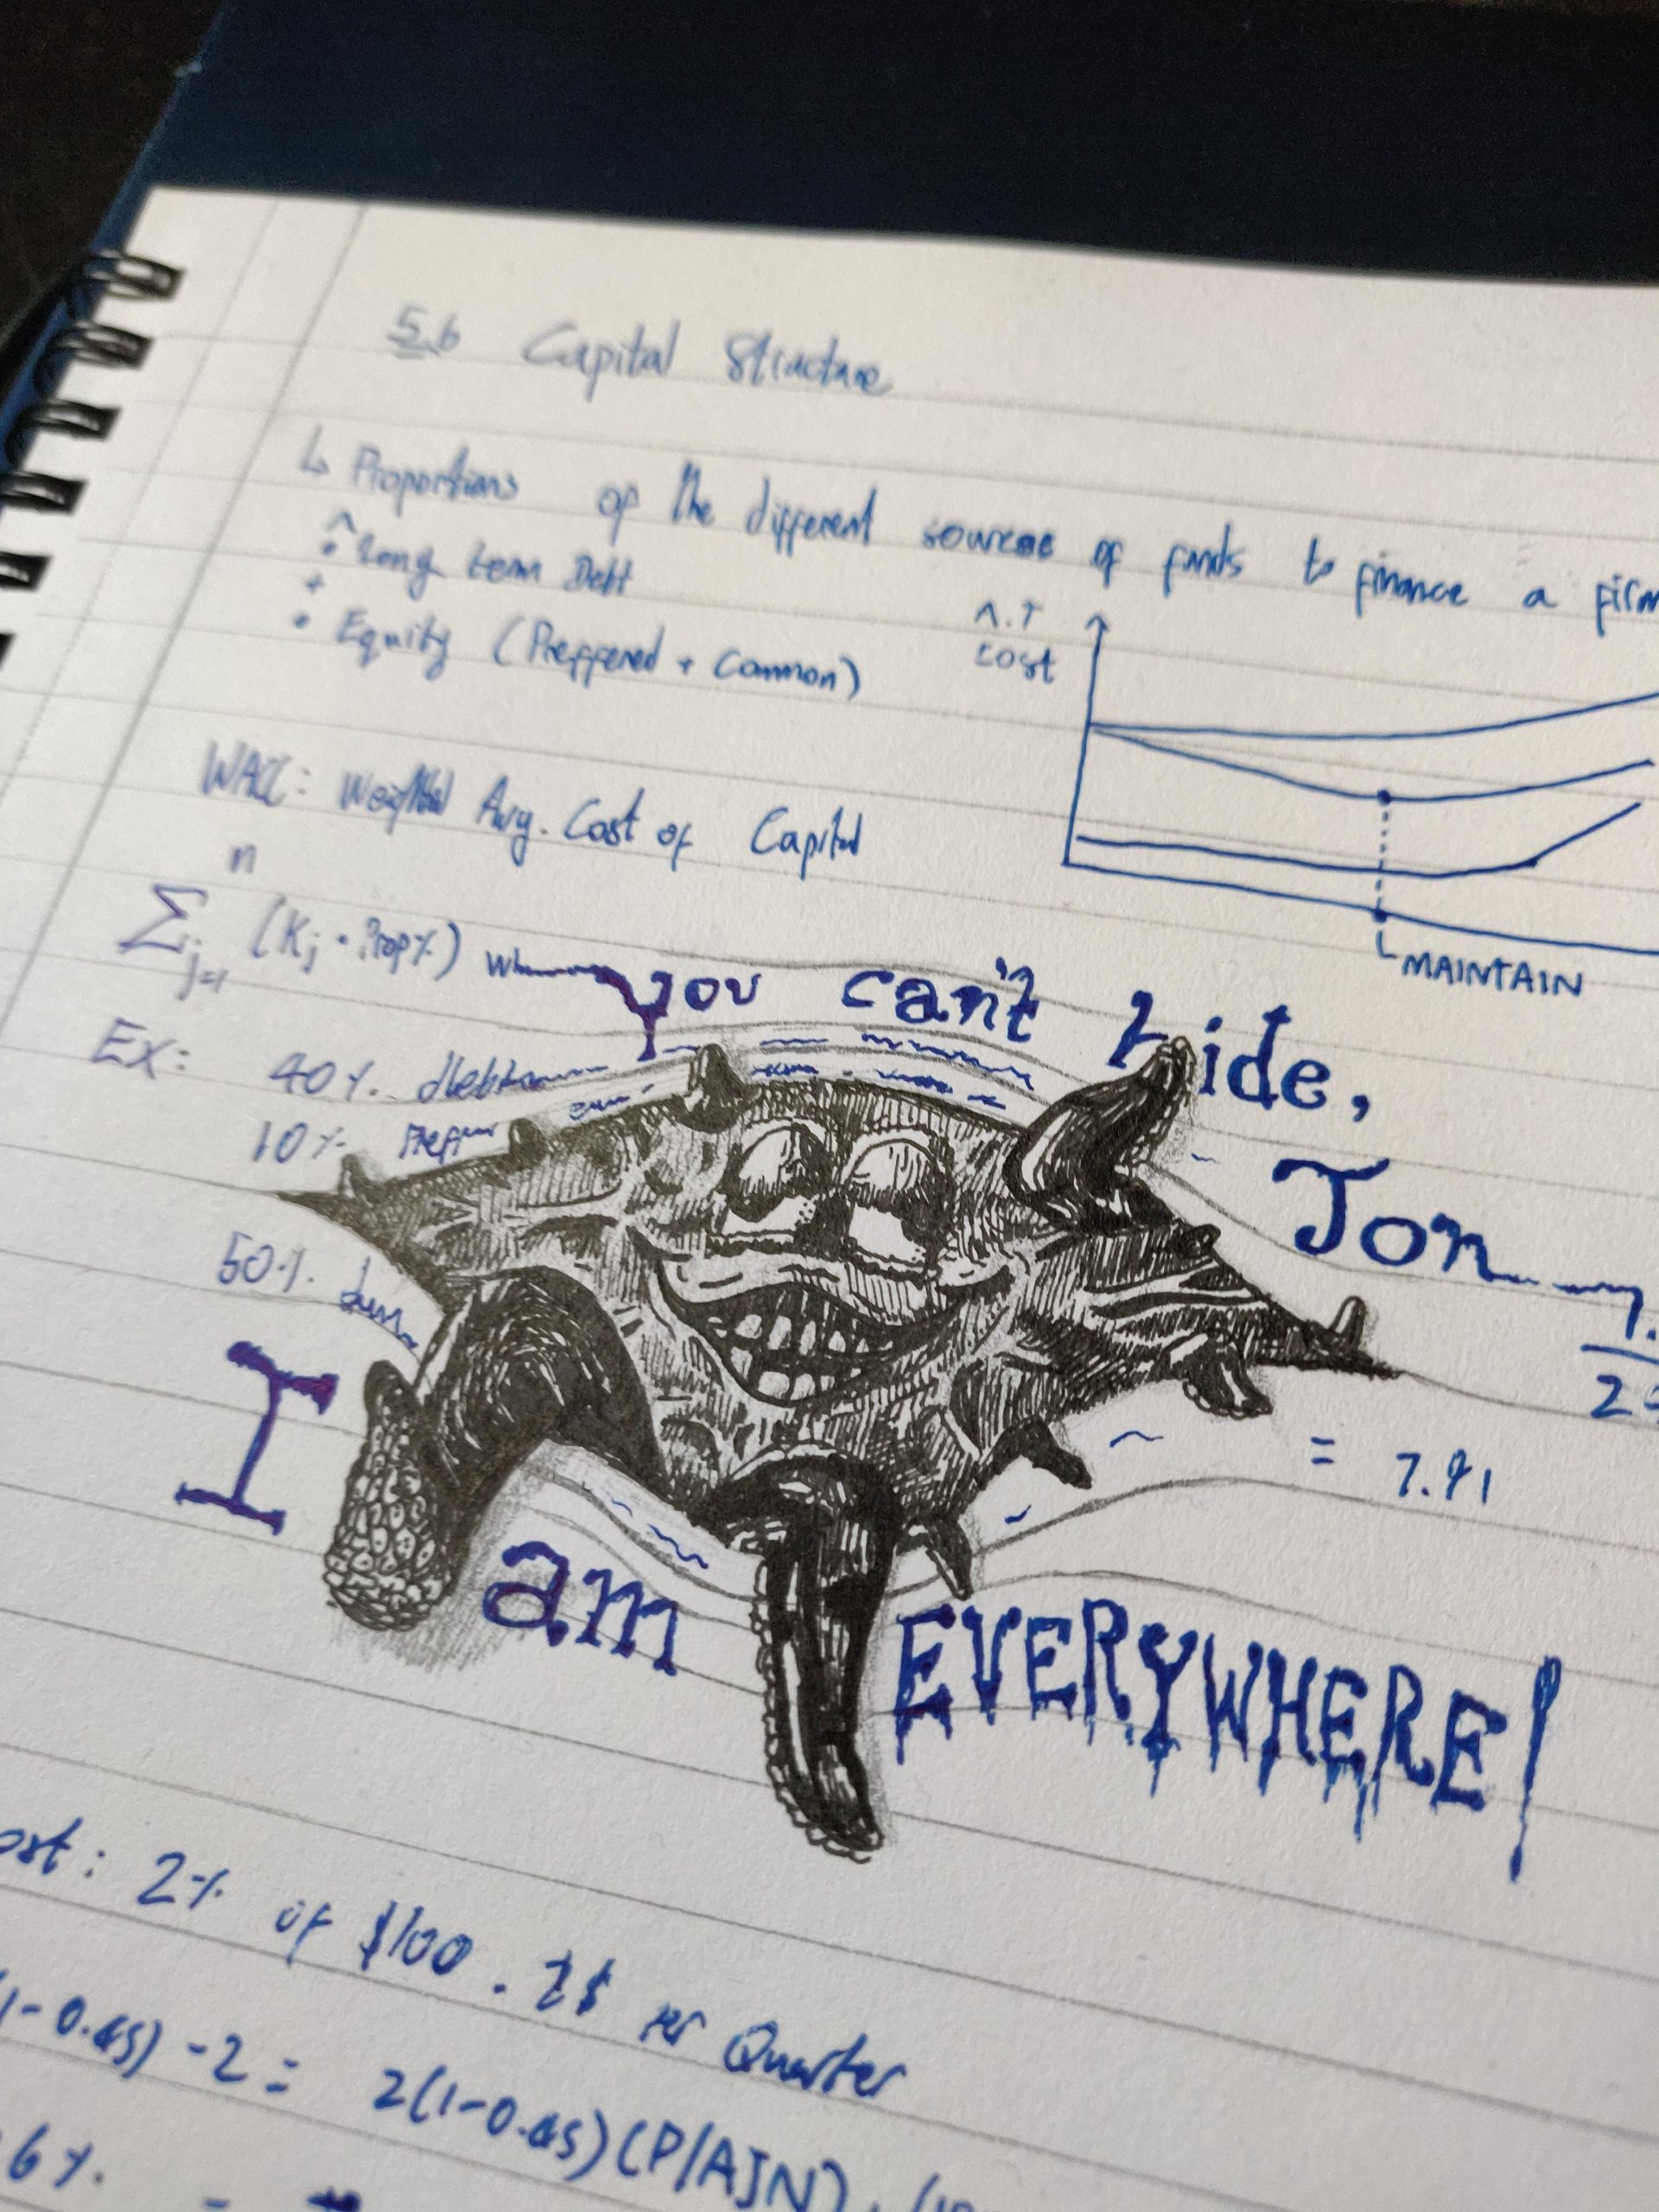 5.6 Capital Structure
↳ Proportions of the different sources of funds to finance a firm
• Long term Debt
+
• Equity (Preffered + Common)
A.T
cost
MAINTAIN
WACC: Weighted Avg. Cost of Capital
n
Σ (Kj · Prop%)
j=1
you can't hide,
Ex: 40%. debt
10%. Preff
Jon
50%.
= 7.91
I am EVERYWHERE!
ost: 2% of $100 . 2$ per Quarter
1-0.45) -2 = 2(1-0.45)(P/AIN)
6%.